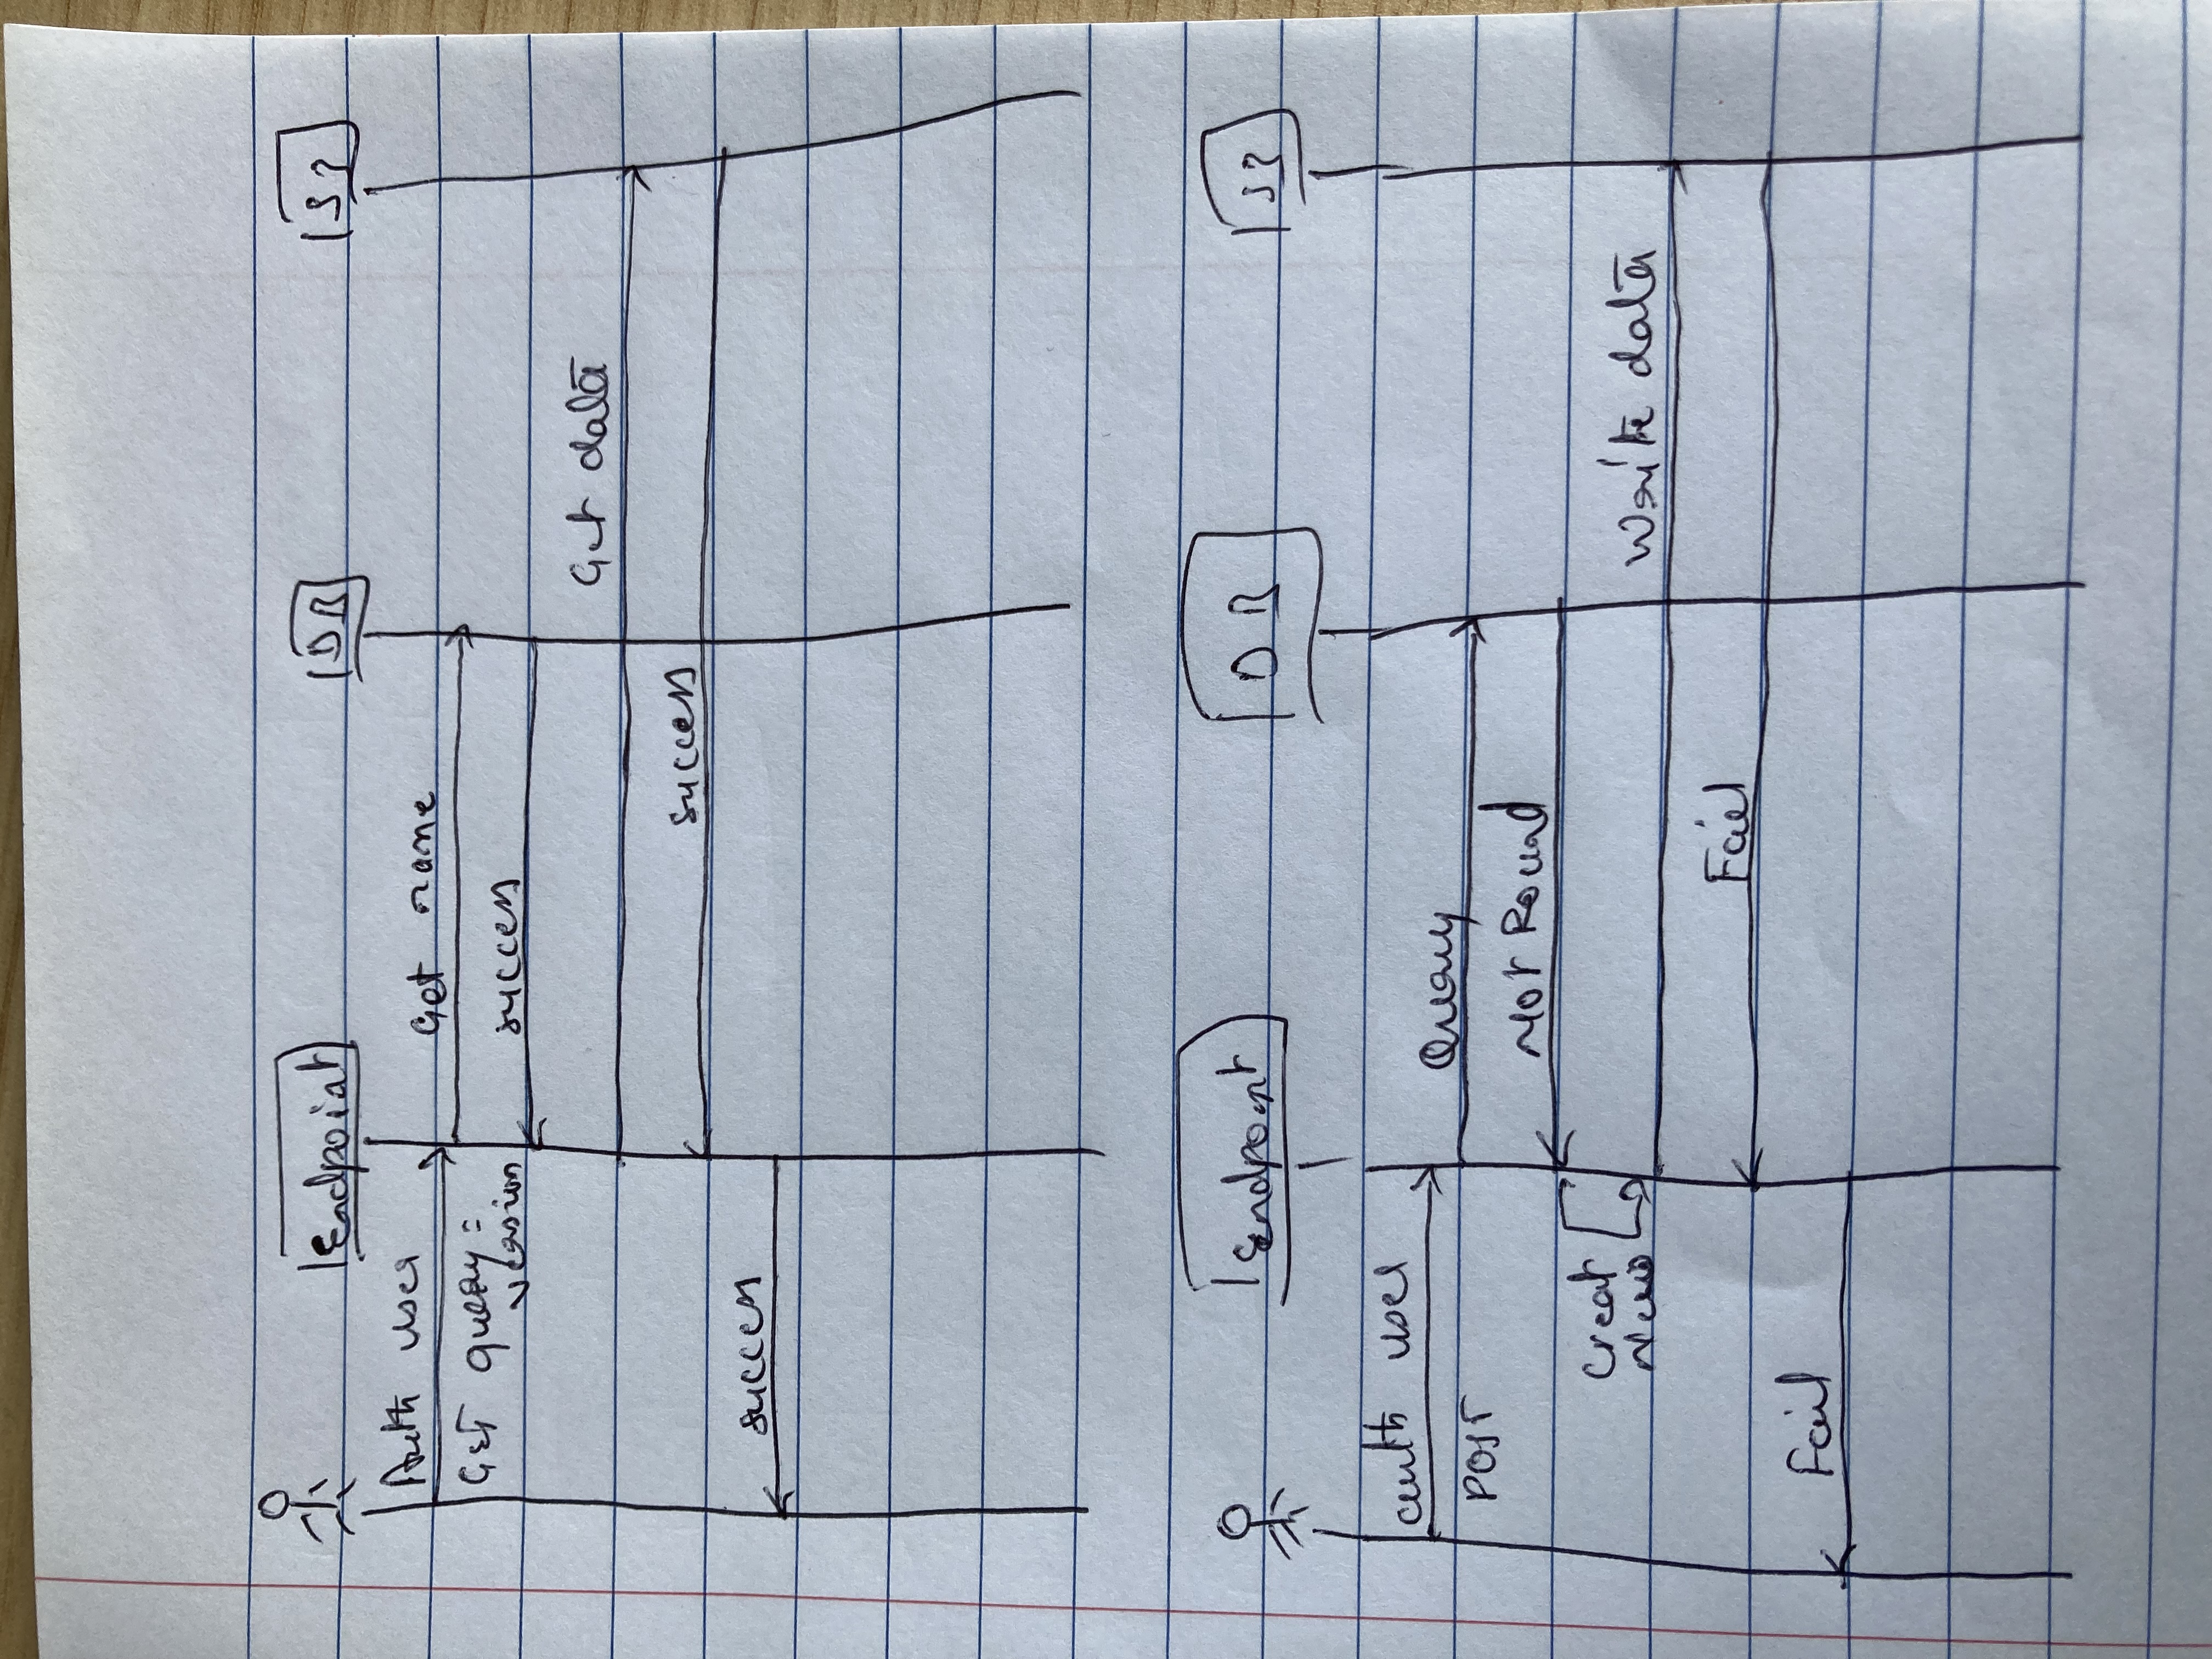 Endpoint DB S3
Auth user
Get name
GET query =
version
success
Get data
success
success
Endpoint DB S3
auth user
Query
POST
Not Found
Creat
New
Write data
Fail
Fail